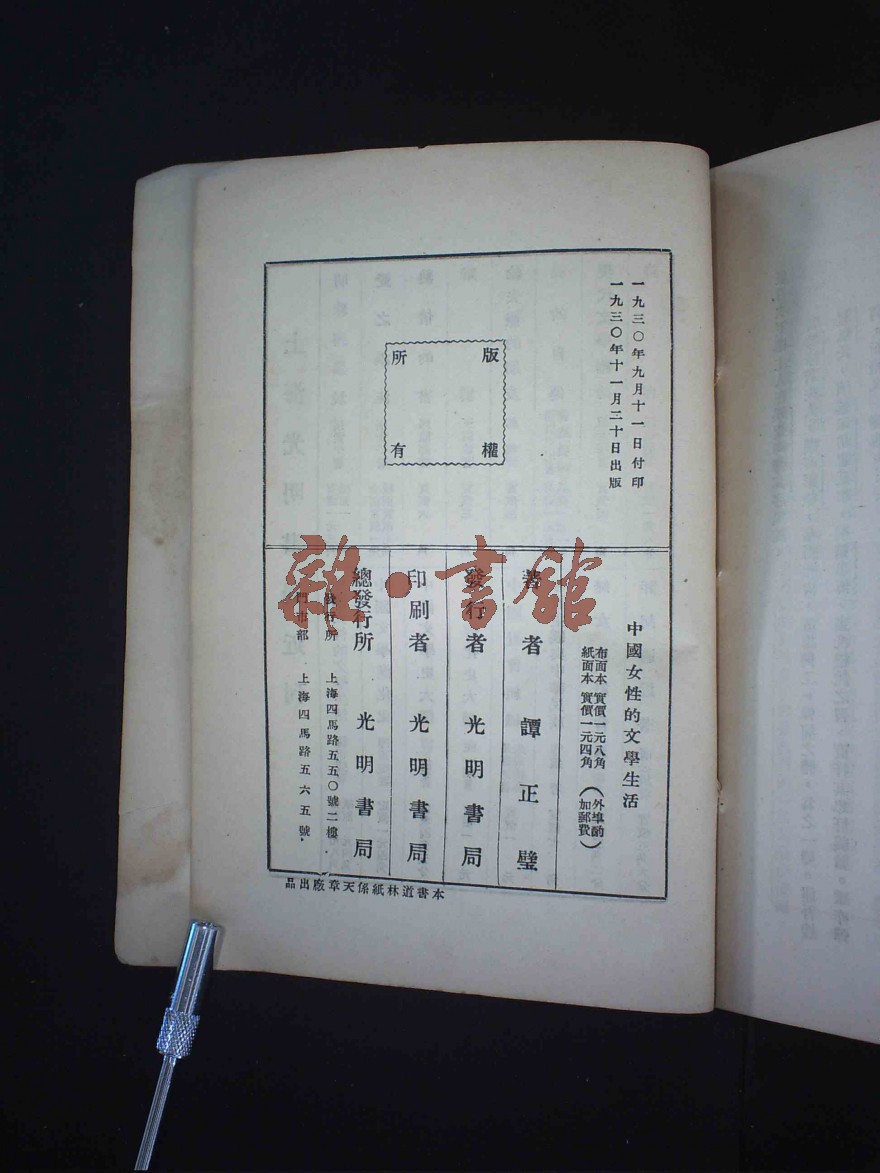 一九三〇年九月十一日付印
一九三〇年十一月二十日出版
版權
所有
中國女性的文學生活
布面本 實價一元八角
紙面本 實價一元四角
(外埠酌
加郵費)
著者 譚正璧
發行者 光明書局
印刷者 光明書局
總發行所 光明書局
發行所 上海四馬路五五〇號二樓
門市部 上海四馬路五六五號。
本書道林紙係天章廠出品
雜·書館